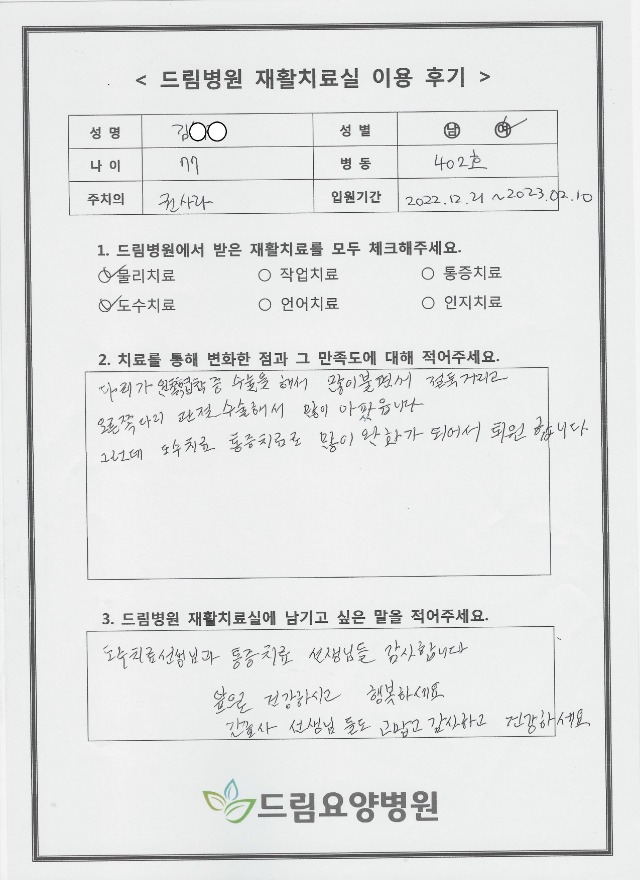 < 드림병원 재활치료실 이용 후기 >
성 명 김○○ 성 별 남 여
나 이 77 병 동 402호
주치의 권사라 입원기간 2022.12.21 ~2023.02.10
1. 드림병원에서 받은 재활치료를 모두 체크해주세요.
물리치료 ○ 작업치료 ○ 통증치료
도수치료 ○ 언어치료 ○ 인지치료
2. 치료를 통해 변화한 점과 그 만족도에 대해 적어주세요.
다리가 수술을 해서 많이불편서 절둑거리고
오른쪽다리 관절수술해서 많이 아팠읍니다
그런데 도수치료 통증치료로 많이 완화가 되어서 퇴원 합니다
3. 드림병원 재활치료실에 남기고 싶은 말을 적어주세요.
도수치료선생님과 통증치료 선생님들 감사합니다
앞으로 건강하시고 행복하세요
간호사 선생님 들도 고맙고 감사하고 건강하세요
드림요양병원